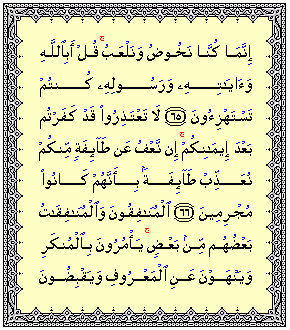 إِنَّمَا كُنَّا نَخُوضُ وَنَلْعَبُ ۚ قُلْ أَبِٱللَّهِ
وَءَايَٰتِهِۦ وَرَسُولِهِۦ كُنتُمْ
تَسْتَهْزِءُونَ ﴿٦٥﴾ لَا تَعْتَذِرُوا۟ قَدْ كَفَرْتُم
بَعْدَ إِيمَٰنِكُمْ ۚ إِن نَّعْفُ عَن طَآئِفَةٍ مِّنكُمْ
نُعَذِّبْ طَآئِفَةًۢ بِأَنَّهُمْ كَانُوا۟
مُجْرِمِينَ ﴿٦٦﴾ ٱلْمُنَٰفِقُونَ وَٱلْمُنَٰفِقَٰتُ
بَعْضُهُم مِّنۢ بَعْضٍ ۚ يَأْمُرُونَ بِٱلْمُنكَرِ
وَيَنْهَوْنَ عَنِ ٱلْمَعْرُوفِ وَيَقْبِضُونَ